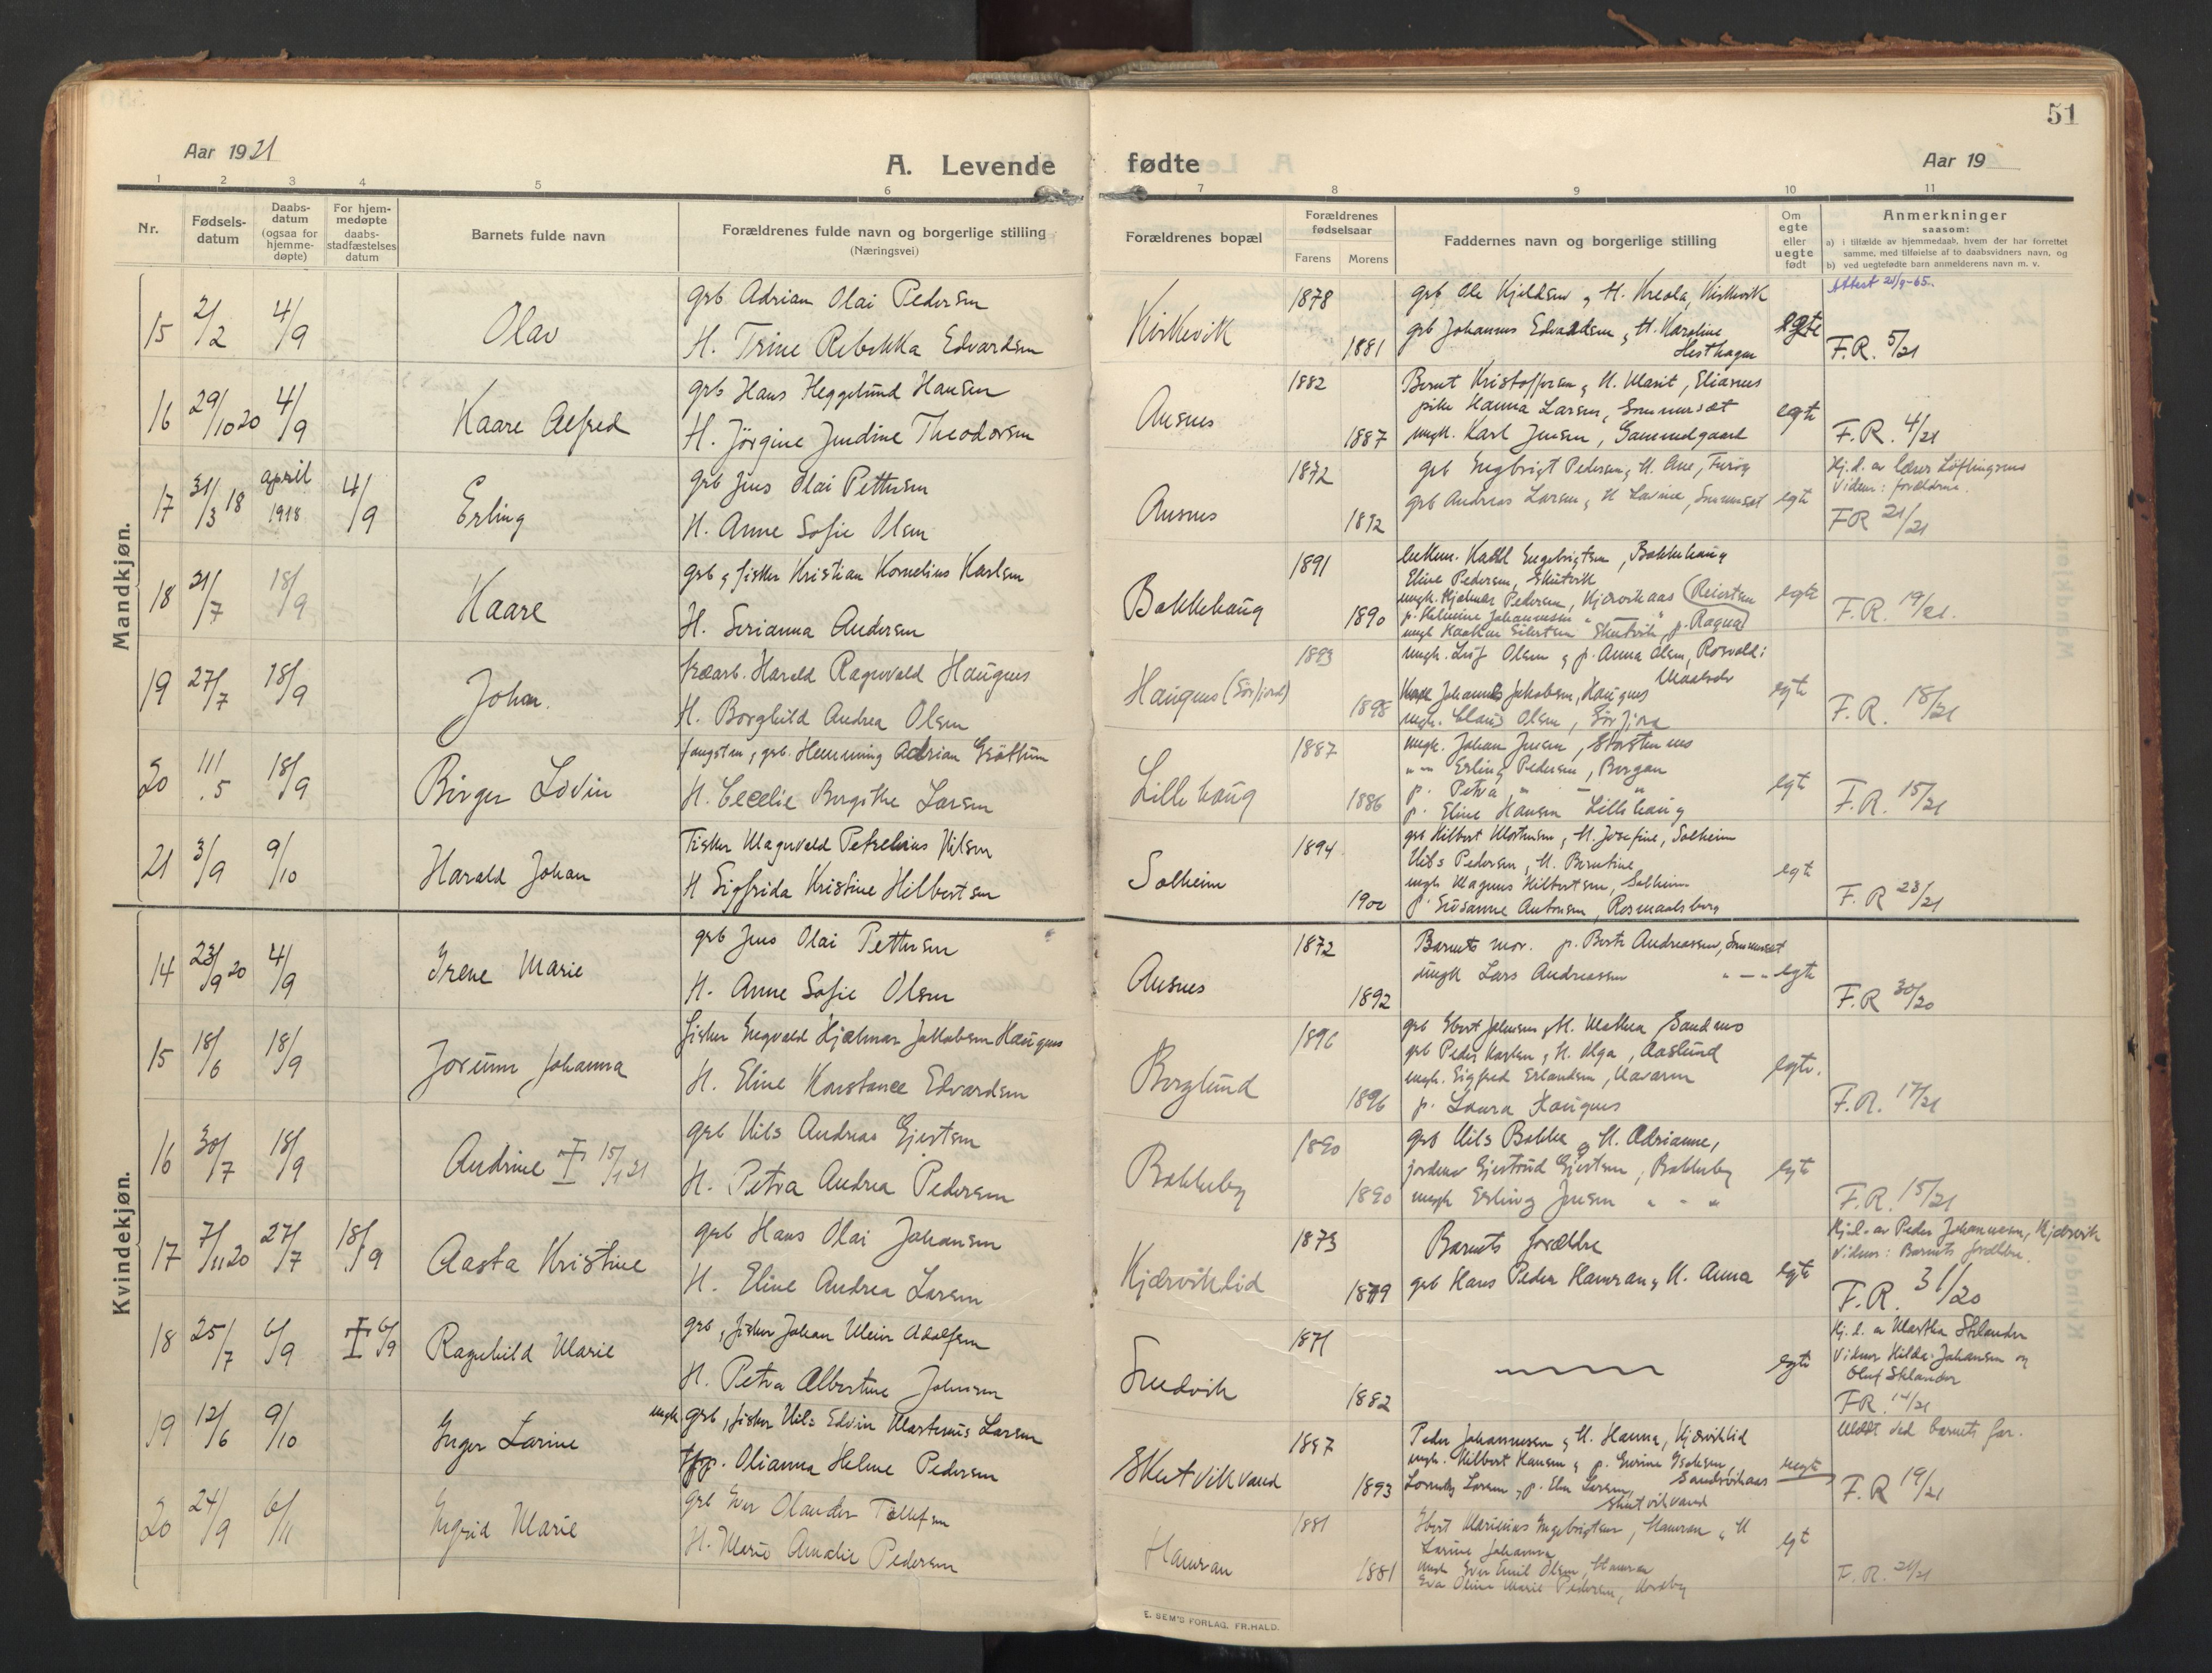 51
Aar 1921
A. Levende fødte
Aar 19
1 2 3 4 5 6 7 8 9 10 11
Nr.
Fødsels-
datum
Daabs-
datum
(ogsaa for
hjemme-
døpte)
For hjem-
medøpte
daabs-
stadfæstelses
datum
Barnets fulde navn
Forældrenes fulde navn og borgerlige stilling
(Næringsvei)
Forældrenes bopæl
Forældrenes
fødselsaar
Farens Morens
Faddernes navn og borgerlige stilling
Om
egte
eller
uegte
født
Anmerkninger
saasom:
a) i tilfælde av hjemmedaab, hvem der har forrettet
samme, med tilføielse af to daabsvidners navn, og
b) ved uegtefødte barn anmelderens navn m. v.
Mandkjøn.
15 2/2 4/9 Olav
grb Adrian Olai Pedersen
H. Trine Rebekka Edvardsen
Kirkevik 1878 1881
grb Ole Kjeldsen & H. Kirkevik
grb Johannes Edvardsen & H. Karoline
Hesthagen
egte
Attest
F.R. 5/21
16 29/10 20 4/9 Kaare Alfred
grb Hans Heggelund Hansen
H. Jörgine Jendine Theodorsen
Ausnes 1882 1887
Bernt Kristoffersen & H. Marit,
pike Hanna Larsen, Sommersæt
ungk. Karl Jensen, Gammelgaard
egte
F.R. 4/21
17 31/3 18 april 1918 4/9 Erling
grb Jens Olai Pettersen
H. Anne Sofie Olsen
Ausnes 1872 1892
grb Engbrigt Pedersen & H. Ane,
grb Andreas Larsen & H Lavine, Sommersæt
egte
Hj.d. av lærer Löflingsnes
Vidner: forældrene.
FR 21/21
18 21/7 18/9 Kaare
grb & fisker Kristian Kornelius Karlsen
H. Serianna Andersen
Bakkehaug 1891 1890
Engebrigtsen, Bakkehaug
Eline Pedersen, Skutvik
ungk. Hjalmar Pedersen, Kjærvikaas (Reiertsen
p. Johannessen
ungk Haakon Eilertsen Skutvik, p. Ragna)
egte
F.R. 19/21.
19 27/7 18/9 Johan.
Harald Ragnvald Haugnes
H. Borghild Andrea Olsen
Haugnes (Sörfjord) 1893 1898
ungk. Leif Olsen & p. Anna Olsen, Rosvold i
Maalselv
Johannes Jakobsen, Haugnes
ungk. Claus Olsen, Sörfjord
egte
F.R. 18/21
20 11/5 18/9 Birger Lovin
fangstm, grb. Hemming Adrian Gröttum
H. Cecelie Bergithe Larsen
Lillehaug 1887 1886
ungk. Johan Jensen, Storstennes
" — Erling Pedersen, Borgan
p. Petra " — "
p. Eline Hansen Lillehaug
egte
F.R. 15/21
21 3/9 9/10 Harald Johan
Fisker Magnvald Petrelius Nilsen
H Sigfrida Kristine Hilbertsen
Solheim 1894 1900
grb Hilbert Mortensen, H. Josefine, Solheim
Nils Pedersen, H. Berntine,
ungk Magnus Hilbertsen, Solheim
p. Susanne Antonsen, Rosmaalsberg
egte
F.R 23/21
Kvindekjøn.
14 23/9 20 4/9 Irene Marie
grb Jens Olai Pettersen
H. Anne Sofie Olsen
Ausnes 1872 1892
Barnets mor. p. Berte Andreassen, Sommersæt
ungk Lars Andreassen " — "
egte
F.R 30/20
15 18/6 18/9 Jorunn Johanna
fisker Engvald Hjalmar Jakobsen Haugnes
H. Eline Konstance Edvardsen
Borglund 1896 1896
grb Ebert Johnsen & H. Mathea Sandnes
grb Peder Karlsen & H. Olga, Aaslund
ungk. Sigfred Erlandsen, Navaren
p. Laura Haugnes
egte.
F.R. 17/21
16 30/7 18/9 Andrine † 15/1 21
grb Nils Andreas Gjertsen
H. Petra Andrea Pedersen
Bakkeby 1890 1890
grb Nils Bakke & H. Adrianne,
jordmor Gjertrud Gjertsen, Bakkeby
ungk Erling Jensen " - "
egte
F.R. 15/21
17 7/11 20 27/7 18/9 Aasta Kristine
grb Hans Olai Johansen
H. Eline Andrea Larsen
Kjærviklid 1873 1879
Barnets forældre
grb Hans Peder Hamran & H. Anna
egte
Hj.d. av Peder Johannessen, Kjærvik
Vidner: Barnets forældre.
F.R. 31/20
18 25/7 6/9 † 6/9 Ragnhild Marie
grb, fisker Johan Meier Adolfsen
H. Petra Albertine Johnsen
Snedvik 1871 1882
egte
Hj.d. av Martha Stelander
Vidner Hilda Johansen og
Oluf Stelander
FR. 14/21
19 12/6 9/10 Inger Larine
ungk grb, fisker Nils Edvin Martenus Larsen
p. Olianna Helene Pedersen
Skutvikvand 1897 1893
Peder Johannessen & H. Hanna, Kjærviklid
ungk. Hilbert Hansen & p. Isaksen, Sandvikaas
Larsen, p. Elen Larsen,
Skutvikvand
uegte
Meldt ved barnets far.
F.R 19/21
20 24/9 6/11 Ingrid Marie
grb Iver Olander Tollefsen
H. Marie Amalie Pedersen
Hamran 1881 1881
Ebert Marinius Engebrigtsen, Hamran & H
Larine Johanna
ungk Iver Emil Olsen, Hamran
Eva Oline Marie Pedersen,
egt
F.R. 24/21
E. SEM'S FORLAG, FR.HALD.